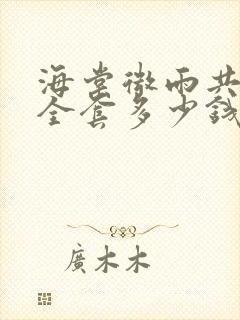 海棠微雨共
全套多少錢
廣木木